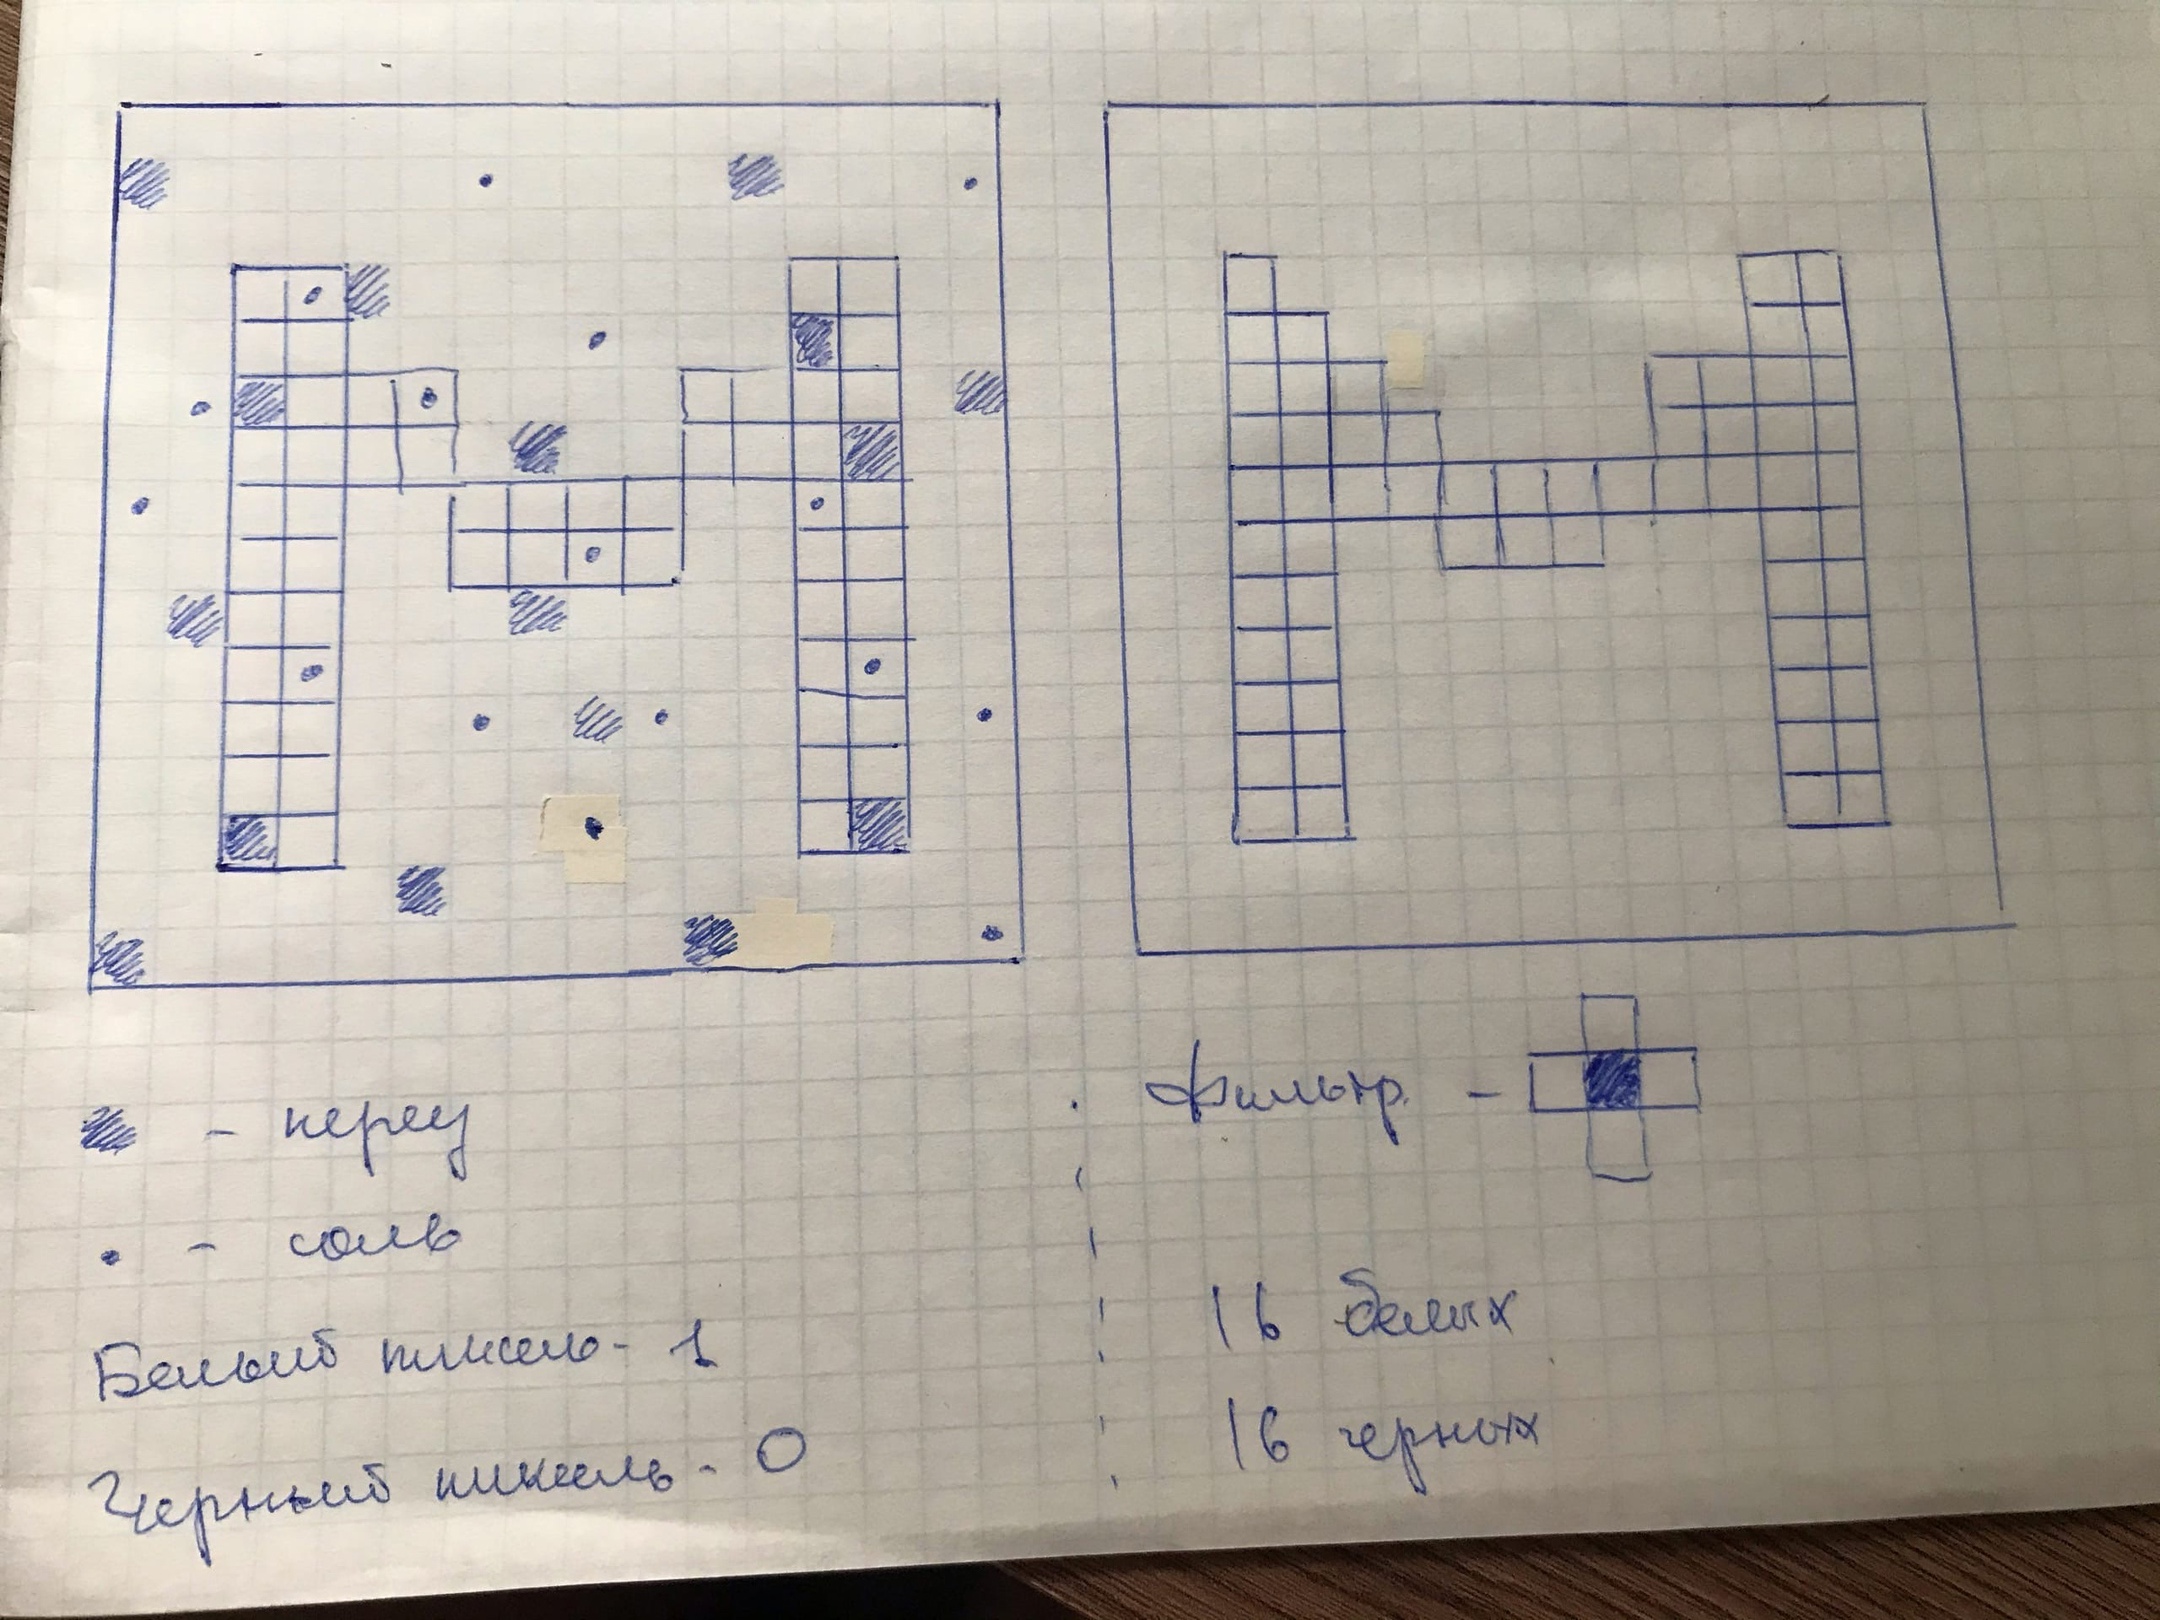 - перец
. - соль
Белый пиксель - 1
Черный пиксель - 0
Фильтр. -
16 белых
16 черных